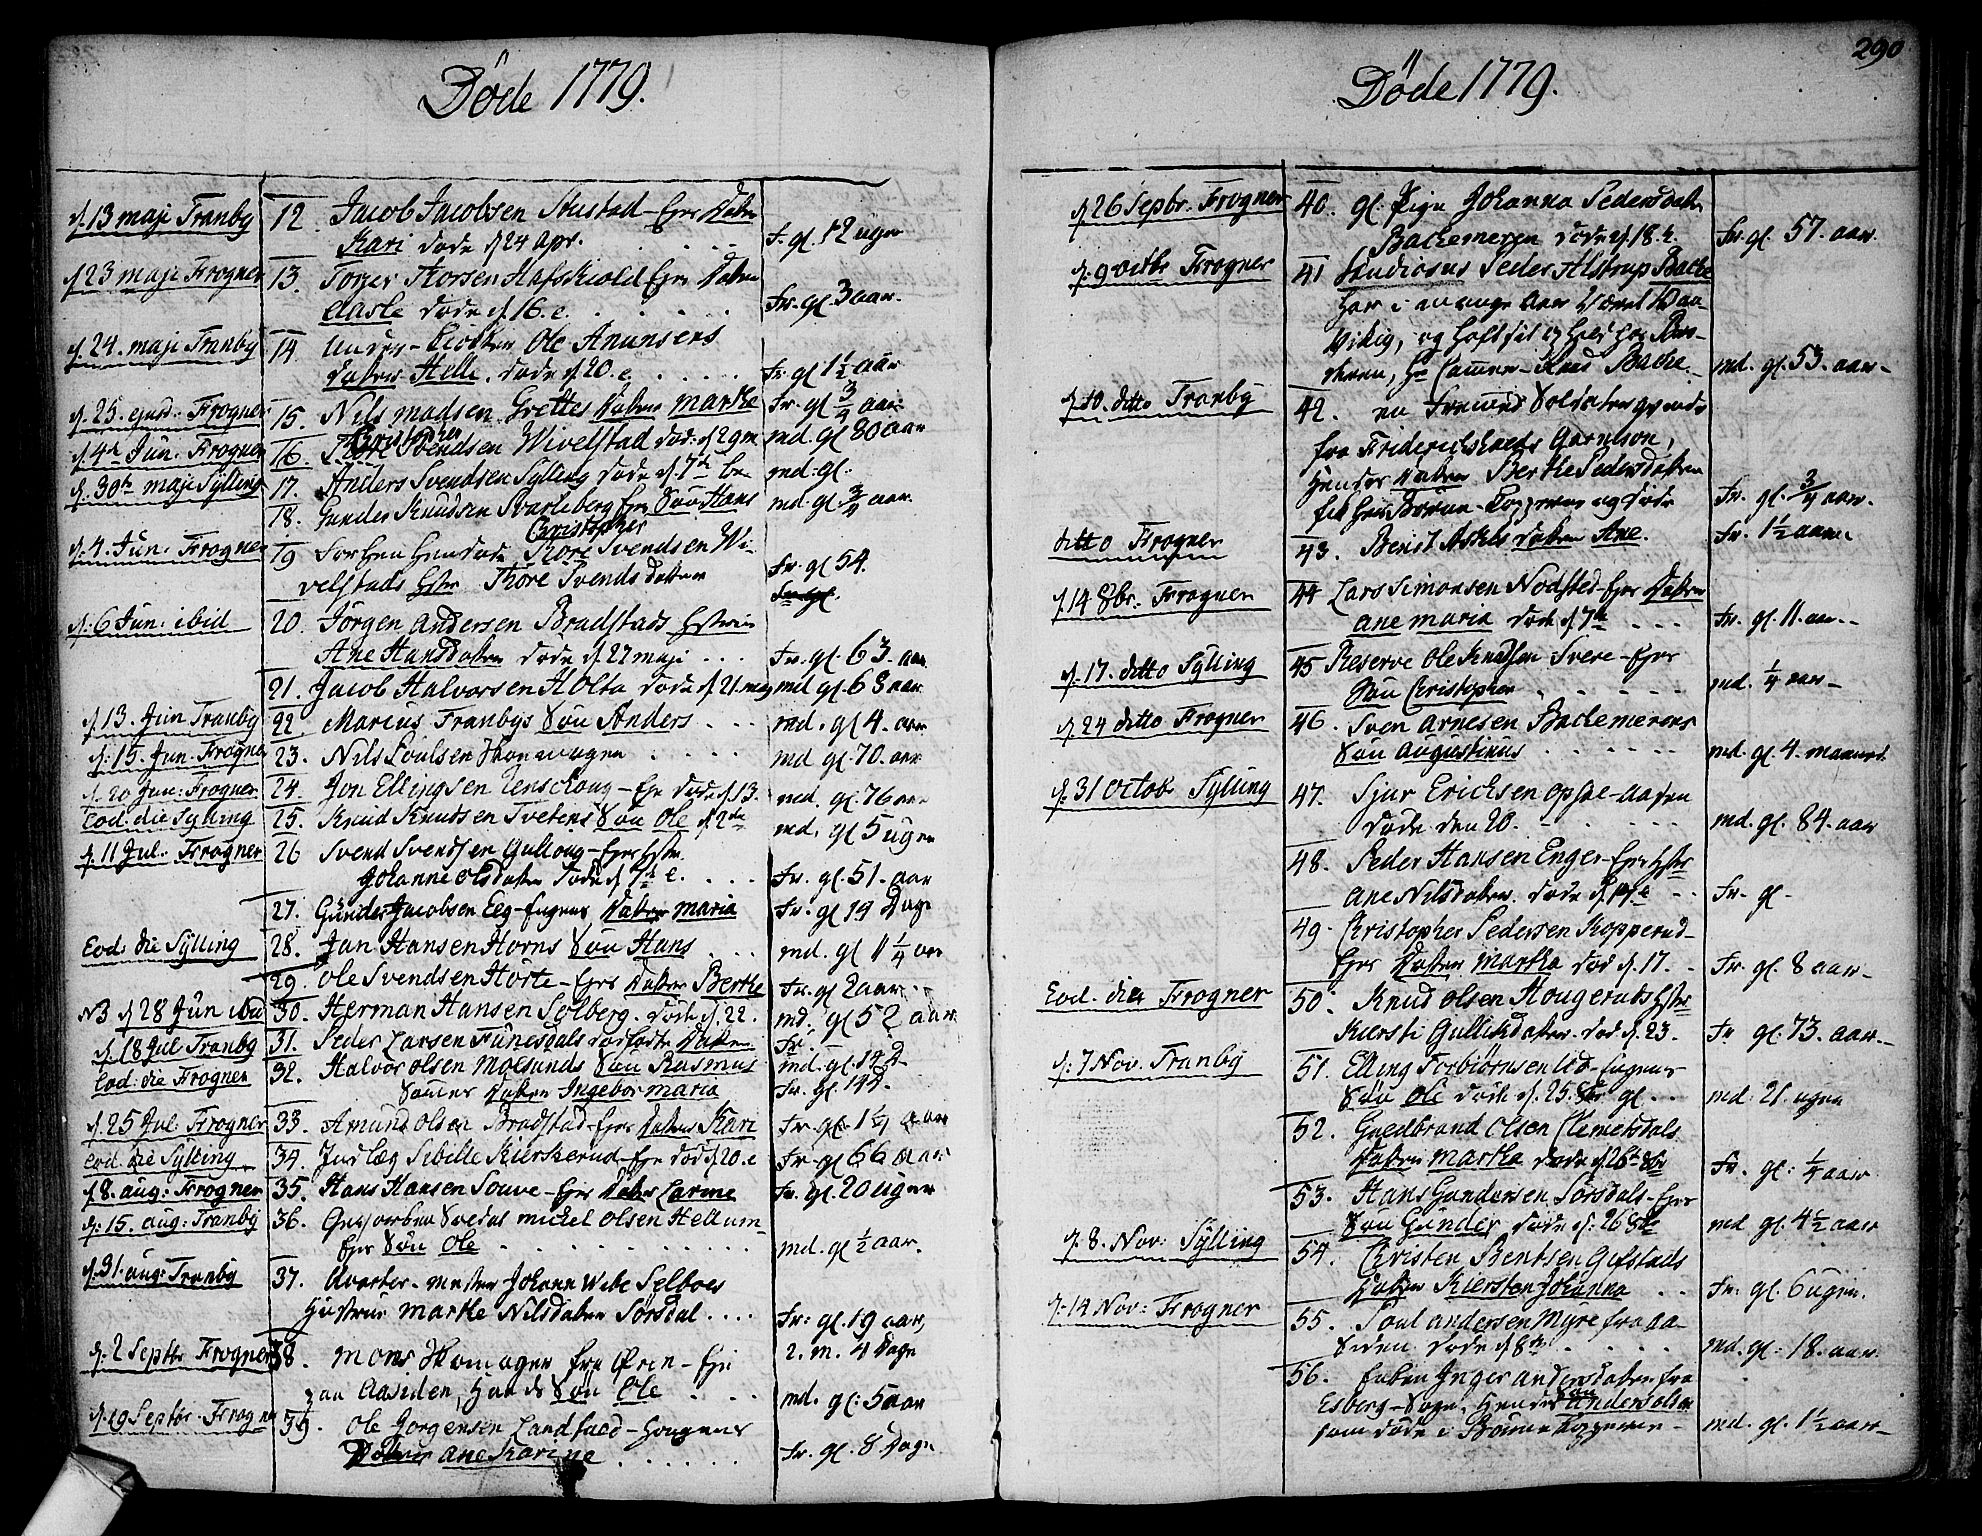 Døde 1779.
d. 13 maji Tranby 12. Jacob Jacobsen Stustad - Ejes Datter
Kari døde d 24 Apr. Fr. gl. 12 uger
d. 23 maji Frogner 13. Torger Thorsen Hafskiold Ejes Datter
Aasle døde d. 16. e. Fr. gl. 3 aar.
d. 24. maji Tranby 14. Under - Ole Anunsens
Datter Helle. døde d. 20. e. Fr. gl 1 1/2 aar
d. 25. ejusd. Frogner 15. Nils madsen Grettes Datter Marthe Fr. gl 3/4 aar
Christopher
d. 4de Jun. Frogner 16. Thore Svendsen Wivelstad død. d. 29 m md. gl 80 aar
d. 30te maji Sylling 17. Anders Svendsen Sylling døde d. 7de be. md. gl.
18. Gunder Knudsen Svarteberg Ejes Søn Hans md. gl 3/4 aar.
Christopher
d. 4. Jun. Frogner 19 Forhen Thore Svendsen Wi-
velstads Hstr Thore Svends Datter Fr. gl 54.
Fr. gl.
d. 6 Jun. ibid 20. Jørgen Andersen Bradstads
Ane Hansdatter døde d. 27 maji Fr. gl. 63. aar
21. Jacob Halvorsen Holta døde d. 21. maj md gl 68 aar
d. 13. Jun Tranby 22 Marcus Tranbys Søn Anders md. gl 4. aar
d. 15. Jun. Frogner 23. Nils Poulsen md gl. 70. aar
d. 20 Jun: Frogner 24. Jon Ellingsen - Eje døde d. 13. md. gl. 76 aar
Eod. die Sylling 25. Knud Knudsen Tvetens Søn Ole d. 2de md. gl 5 ugen
d. 11 Jul. Frogner 26 Svend Svendsen Gulloug - Ejes Hstr.
Johanne Olsdatter døde d. 7de e. Fr. gl. 51. aar
27. Gunder Jacobsen Eeg - Engens Datter Maria Fr. gl 14 Dage
Eod. die Sylling 28. Jan Hansen Horns Søn Hans md. gl 11 1/4 aar
29. Ole Svendsen Hørte - Ejes Datter Berthe Fr. gl 2 aar
N3 d 28 Jun ibid 30. Herman Hansen Solberg. døde d. 22. md. gl 52 aar
d. 18 Jul Tranby 31. Peder Larsen Funesdals dødfødte Datter Fr.
Eod. die Frogner 32. Halvor Olsen Moesunds Søn Rasmus md. gl. 14 d
Sammes Datter Ingebor maria Fr. gl. 14 d.
d. 25 Jul. Frogner 33. Amund Olsen Bradstad - Ejes Datter Kari Fr. gl. 1 1/4 aar
Eod. die Sylling 34. Indlæg Sibille Kierkerud - Eje død d. 20. e Fr. gl 66 aar
d. 8. aug: Frogner 35. Hans Hansen Souve - Ejes Datter Karine Fr. gl. 20 ugen
d. 15. aug: Tranby 36. michel Olsen Hellum-
Ejes Søn Ole md. gl 1/2 aar.
d. 31. aug: Tranby 37. Qvarter - mester Johann Wibe Seltoes
Hustrue Marthe Nilsdatter Sørsdal Fr: gl. 19 aar,
2. m. 4 Dage
d. 2 Septbr Frogner 38. Mons fra Øren - Eje
paa Aasiden, Hands Søn Ole md. gl: 5 aar
d. 19 Septbr. Frogner 39. Ole Jorgensen Landfald - Hougens
Datter Ane Karine Fr. gl. 8 Dage
290
Døde 1779.
d. 26 Sepbr. Frogner 40. gl. Pige Johanna Pedersdatter
Bachemeren døde d. 18. e. Fr. gl. 57. aar.
d. 9 octbr Frogner 41 Studiosus Peder Alstrup Bache
har i mange Aar Været
og holdt sit hos Bro-
deren, Hr Cammer - Bache. md. gl. 53. aar
d. 10. ditto Tranby 42. en fremmed Soldater
fra Friderichstads Garnison,
Hendes Datter Berthe Pedersdatter
fik her og døde Fr. gl. 3/4 aar.
ditto Frogner 43. Berit Askels datter Ane. Fr. 1 1/2 aar.
d. 14 8br. Frogner 44 Lars Simonsen Nødsted - Ejes Datter
Ane maria døde d 7de Fr. gl. 11. aar
d. 17. ditto Sylling 45 Reserve Ole Knudsen Svere - Ejes
Søn Christopher md. 1/4 aar
d. 24 ditto Frogner 46. Sven Arnesen Bachemerens
Søn Augustinus md. gl. 4. maaned
d. 31 Octobr Sylling 47. Sjur Ericksen
døde den 20. md. gl. 84. aar
48. Peder Hansen Enger - Ejes Hstr
Ane Nilsdatter. døde d. 19. e Fr. gl.
49. Christopher Pedersen Kopperud-
Ejes Datter Martha død d. 17. Fr. gl. 8 aar
Eod. die Frogner 50. Knud Olsen Hougeruds Hstr
Kiersti Gulliksdatter. død d. 23. Fr gl. 73. aar.
d. 7 Nov. Tranby 51. Elling Torbiørnsen Ud - Engens
Søn Ole døde d. 25. 8br gl. md. 21. ugen
52. Guldbrand Olsen Clemetsdals
Datter Martha døde d. 26 8br Fr. gl: 1/4 aar
53. Hans Gundersen Sørsdals - Ejes
Søn Gunder døde d: 26 8br md gl. 4 1/2 aar
d. 8. Nov: Sylling 54. Christen Bentsen Gifstads
Datter Kiersten Johanna Fr. gl. 6 ugen.
d. 14 Nov: Frogner 55. Poul Andersen Myre fra Aa-
siden. døde d 8de md. gl: 18. aar
56. Enken Inger Andersdatter fra
Søn
Esberg - Sogn. Hendes Anders Olsen
som døde i md. gl. 1 1/2 aar